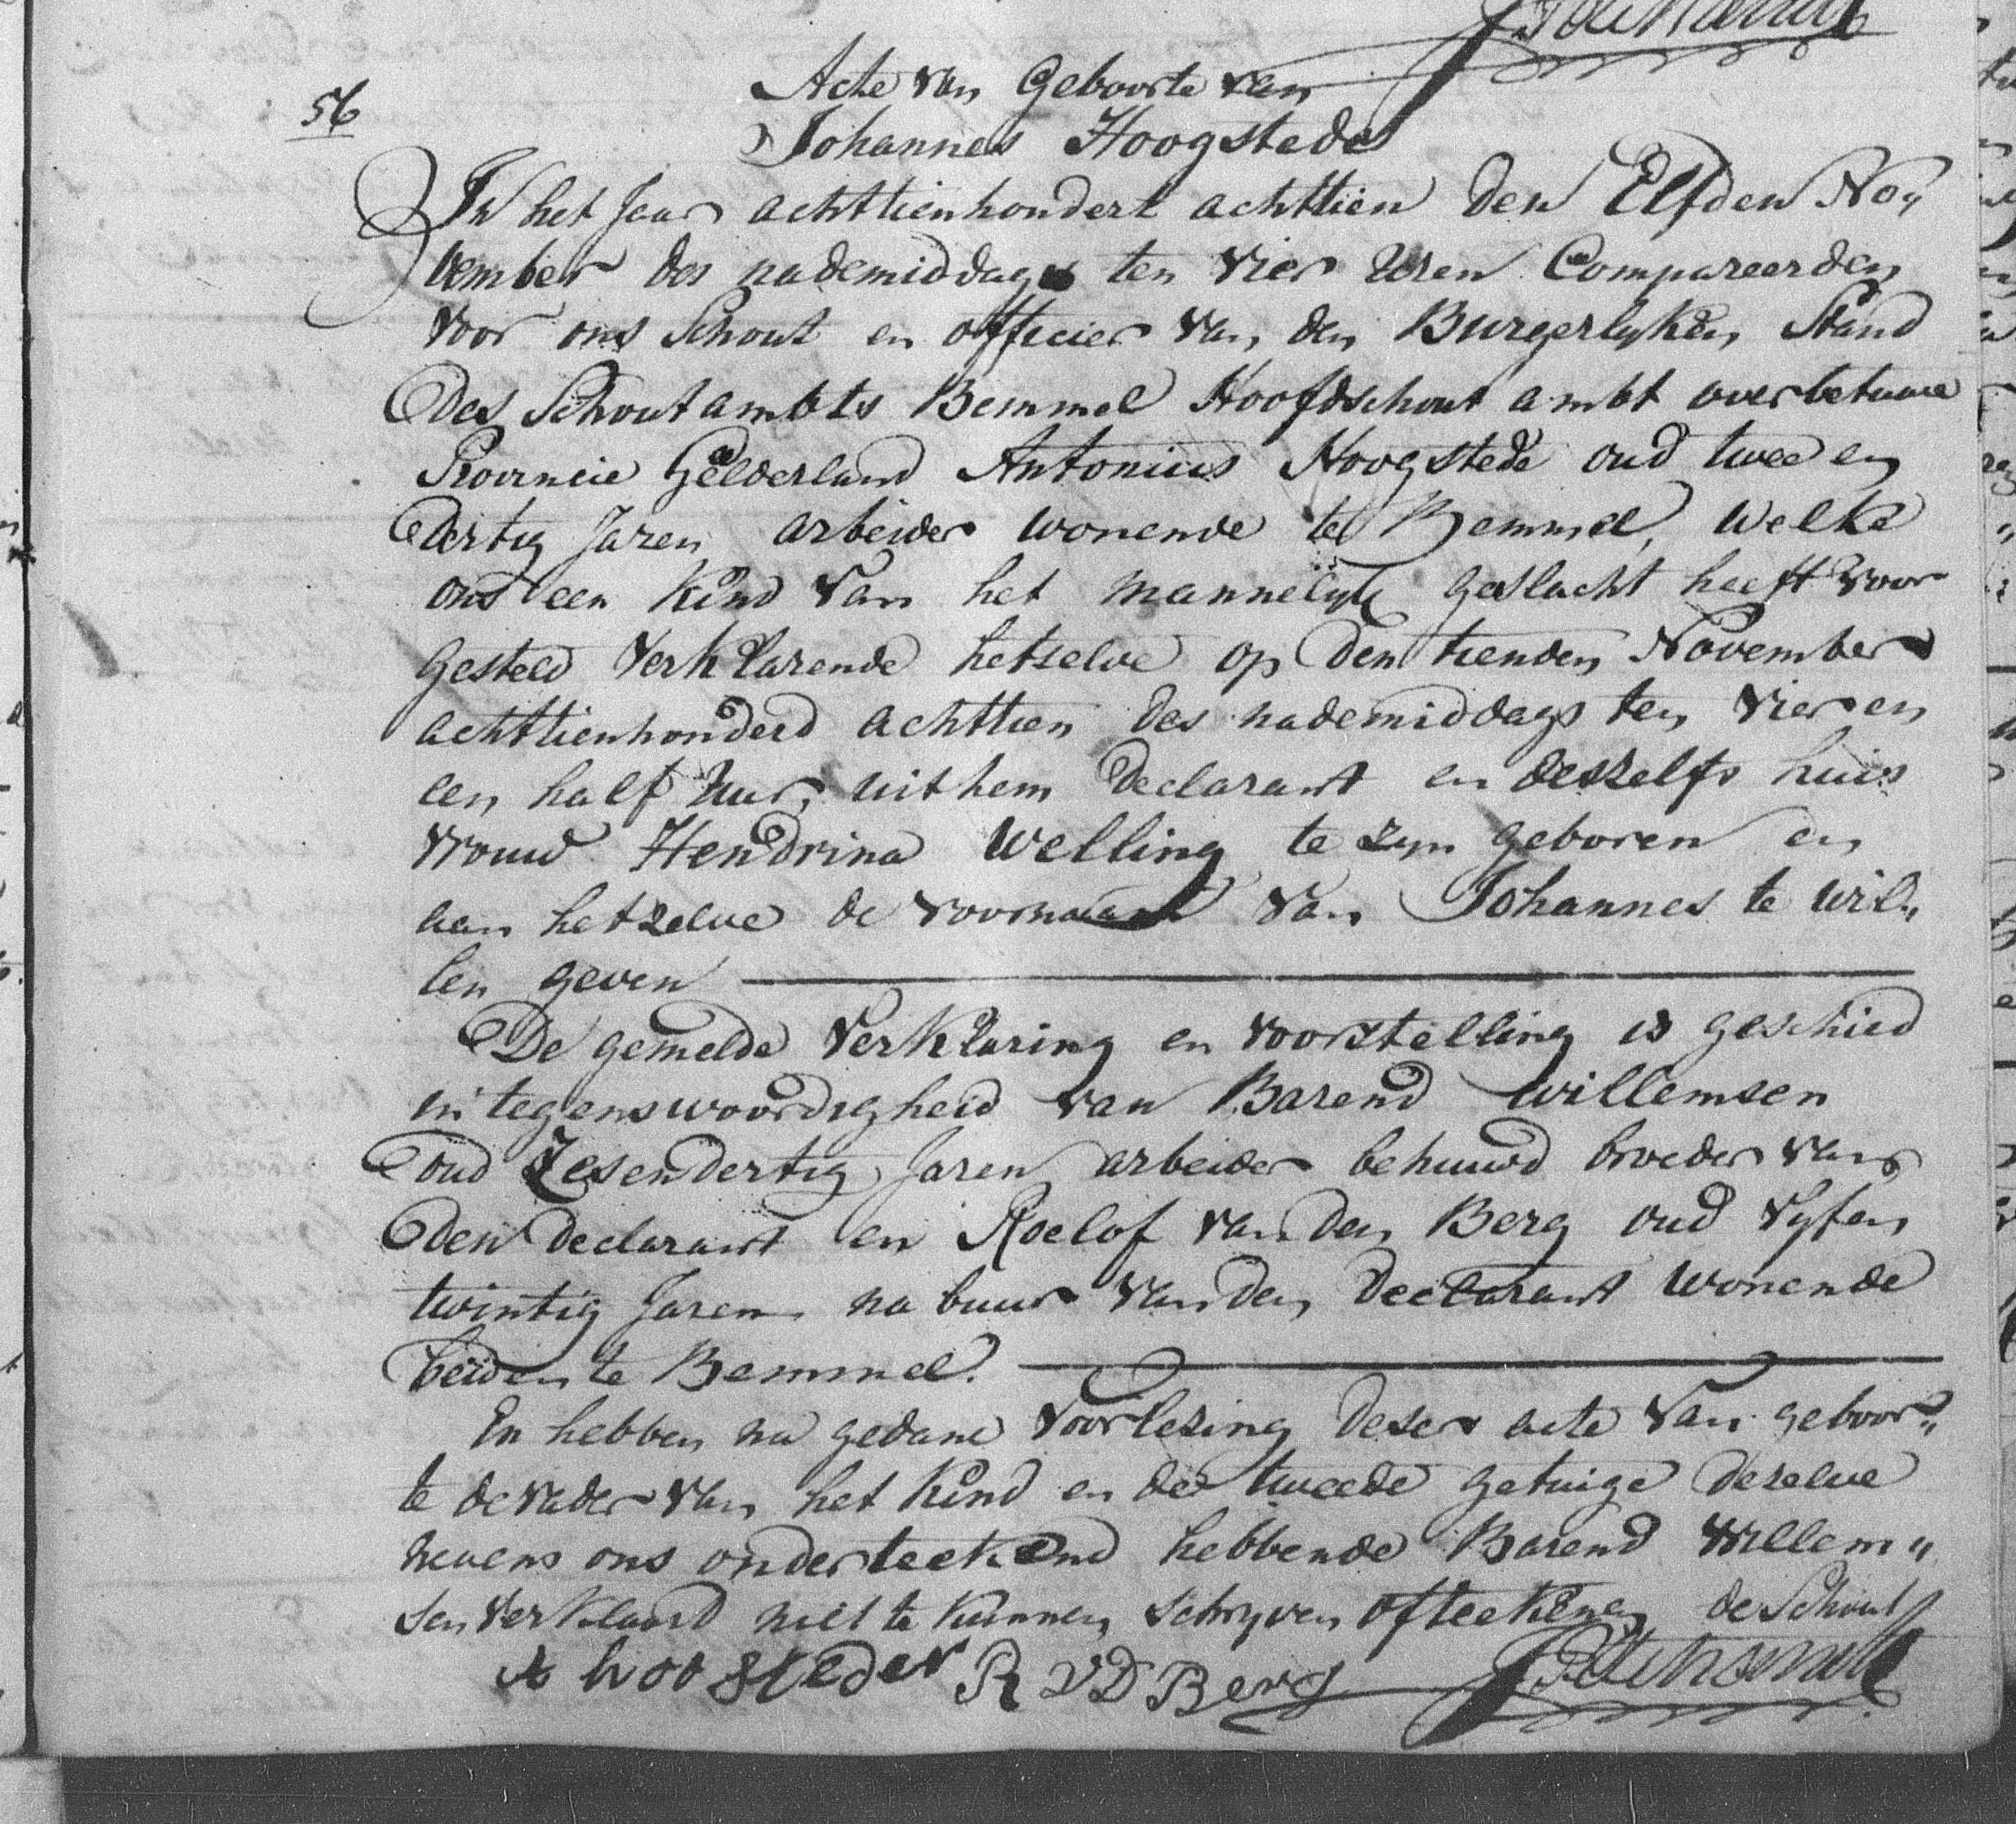 56
Acte van Geboorte van
Johannes Hoogstede
In het Jaar achttienhondert achttien den Elfden No„
vember des nademiddags ten vier Uren Compareerden
voor ons Schout en officier van den Burgerlyken Stand
des Schoutambts Bemmel Hoofdschout ambt overbetuwe
Provincie Gelderland Antonius Hoogstede oud twee en
dertig Jaren arbeider wonende te Bemmel, welke
ons een Kind van het mannelyk geslacht heeft voor
gesteld verklarende hetselve op den tienden November
achttienhonderd achttien des nademiddags ten vier en
een half uur, uit hem declarant en deszelfs huis
vrouw Hendrina Welling te zyn geboren en
aan hetzelve de voornaam van Johannes te wil„
len geven
De gemelde verklaring en voorstelling is geschied
in tegenswoordigheid van Barend Willemsen
oud Zesendertig Jaren arbeider behuwd broeder van
den declarant en Roelof van den Berg oud vyfen
twintig Jaren nabuur van den declarant wonende
beiden te Bemmel.
En hebben na gedane voorlesing deser acte van geboor„
te de vader van het Kind en de tweede getuige deselve
nevens ons onderteekend hebbende Barend Willem„
sen verklaard niet te kunnen schryven of teekenen de Schout
A hoogsteder R V D Berg